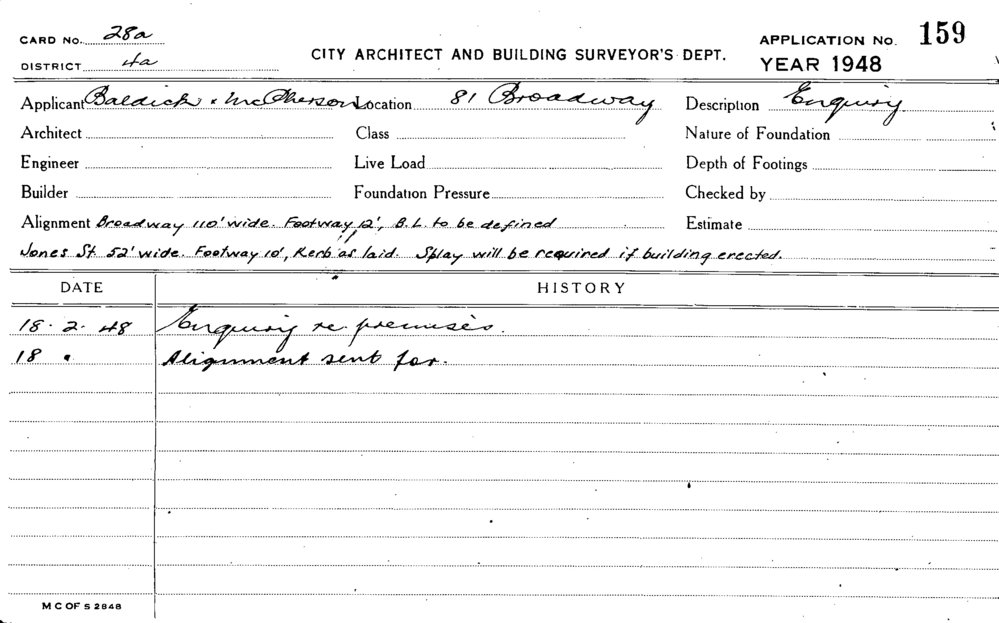 CARD No. 28a
CITY ARCHITECT AND BUILDING SURVEYOR'S DEPT.
APPLICATION No. 159
DISTRICT 4a
YEAR 1948
Applicant Baldick & McPherson Location 81 Broadway Description Enquiry
Architect Class Nature of Foundation
Engineer Live Load Depth of Footings
Builder Foundation Pressure Checked by
Alignment Broadway 110' wide. Footway 12', B.L. to be defined Estimate
Jones St. 52' wide. Footway 10', Kerb as laid. Splay will be required if building erected.
DATE HISTORY
18. 2. 48 Enquiry re premises.
18 " Alignment sent for.
M C OF S 2848